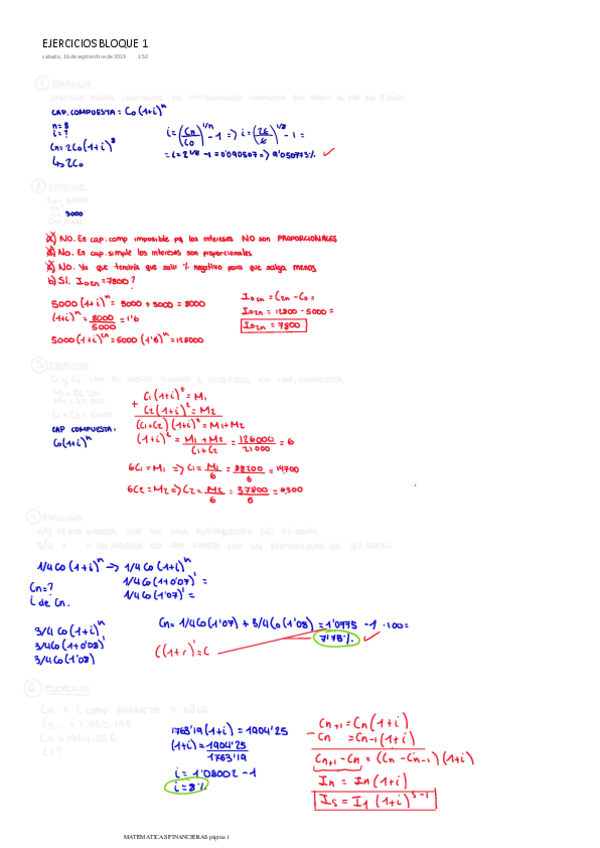 EJERCICIOS BLOQUE 1
sábado, 16 de septiembre de 2023 1:52
① EJERCICIO
CAP. COMPUESTA = C₀(1+i)ⁿ
n=8
i=?
Cn=2C₀(1+i)⁸
↳2C₀
i=(Cn/C₀)^(1/n) -1 => i=(2C/C)^(1/8) -1 =
=i=2^(1/8) -1=0'090507=>9'050773%
② EJERCICIO
3000
a) NO. En cap. comp imposible pq los intereses NO son PROPORCIONALES
No. En cap. simple los intereses son proporcionales
c) NO. Ya que tendría que salir % negativo para que salga menos
b) SI. I₀,₂n=7800?
5000(1+i)ⁿ = 5000+3000=8000
(1+i)ⁿ = 8000/5000 = 1'6
5000(1+i)²ⁿ=5000(1'6)ⁿ=12800
I₀,₂n=C₂n-C₀=
I₀,₂n=12800-5000=
I₀,₂n=7800
③ EJERCICIO
C₁ y C₂ CAP AL MISMO TIEMPO E INTERESES EN CAP. COMPUESTA
M₁: 88.200
M₂: 37.800
C₁+C₂=21000
CAP COMPUESTA:
C₀(1+i)ⁿ
C₁(1+i)ᵗ=M₁
+
C₂(1+i)ᵗ=M₂
(C₁+C₂)(1+i)ᵗ=M₁+M₂
(1+i)ᵗ = M₁+M₂/C₁+C₂ = 126000/21000 = 6
6C₁=M₁ => C₁=M₁/6 = 88200/6 = 14700
6C₂=M₂=>C₂=M₂/6 = 37800/6 = 6300
④ EJERCICIO
1/4Co(1+i)ⁿ → 1/4Co(1+i)ⁿ
1/4Co(1+0'07)¹ =
1/4Co(1'07)¹ =
Cn=?
i de Cn.
3/4Co(1+i)ⁿ
3/4Co(1+0'08)¹
3/4Co(1'08)
Cn=1/4Co(1'07)+3/4Co(1'08)=1'0775-1·100=
7'75%
C(1+r)¹=C
⑥ EJERCICIO
Cn = 1904.25€
i=?
1763'19(1+i)=1904'25
(1+i)=1904'25/1763'19
i=1'08002-1
i=8%
Cn+1=Cn(1+i)
-Cn =Cn-1(1+i)
Cn+1-Cn=(Cn-Cn-1)(1+i)
In=In(1+i)
Is=I1(1+i)^(s-1)
MATEMATICAS FINANCIERAS página 1